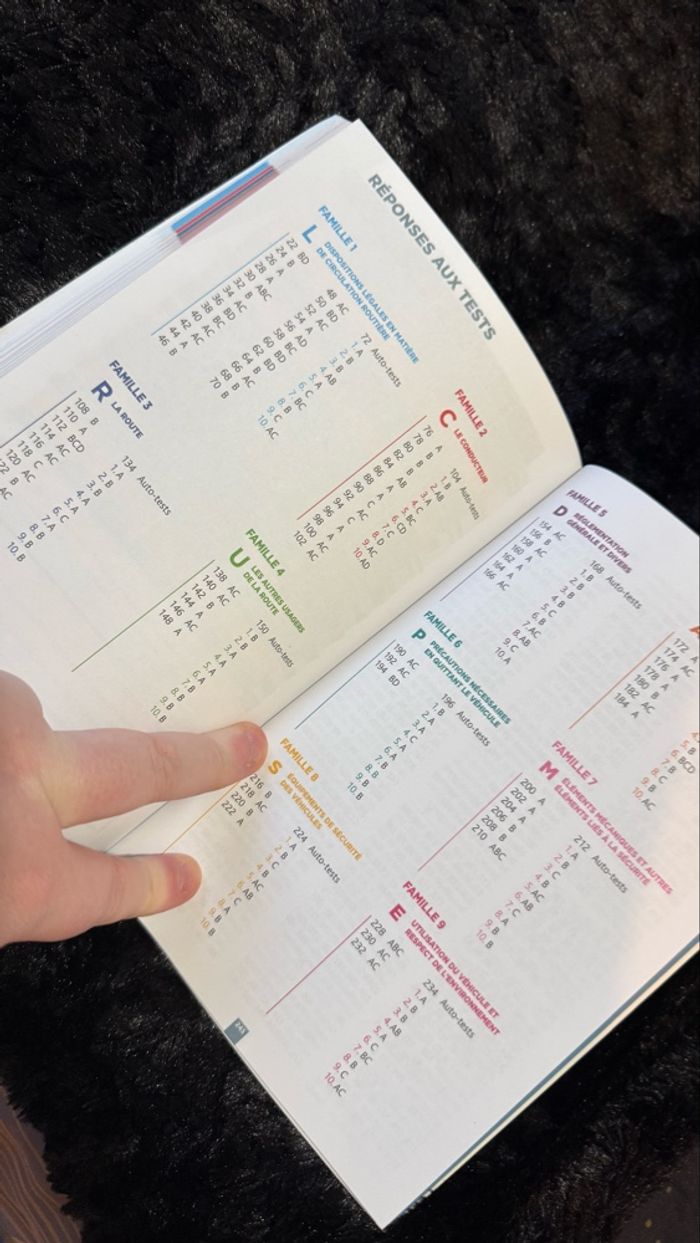 RÉPONSES AUX TESTS
FAMILLE 1
L DISPOSITIONS LÉGALES EN MATIÈRE
DE CIRCULATION ROUTIÈRE
22 BD
24 B
26 A
28 A
30 ABC
32 B
34 AC
36 BD
38 BC
40 AC
42 AC
44 A
46 B
48 AC
50 BD
52 AC
54 A
56 AD
58 BC
60 BD
62 BD
64 B
66 AC
68 B
70 B
72 Auto-tests
1.A
2.B
3.B
4.AB
5.A
6.C
7.BC
8.B
9.C
10.AC
FAMILLE 2
C LE CONDUCTEUR
76 A
78 B
80 B
82 B
84 AB
86 A
88 A
90 C
92 AC
94 C
96 A
98 A
100 AC
102 AC
104 Auto-tests
1.B
2.AB
3.A
4.C
5.BC
6.CD
7.C
8.D
9.AC
10.AD
FAMILLE 3
R LA ROUTE
108 B
110 A
112 BCD
114 AC
116 AC
118 C
120 AC
22 B
AC
134 Auto-tests
1.A
2.B
3.B
4.A
5.A
6.C
7.A
8.B
9.B
10.B
FAMILLE 4
U LES AUTRES USAGERS
DE LA ROUTE
138 AC
140 AC
142 B
144 A
146 AC
148 A
150 Auto-tests
1.B
2.B
3.A
4.A
5.A
6.A
7.B
8.B
9.B
10.B
FAMILLE 5
D RÉGLEMENTATION
GÉNÉRALE ET DIVERS
154 AC
156 B
158 AC
160 A
162 A
164 A
166 AC
168 Auto-tests
1.B
2.B
3.B
4.B
5.C
6.B
7.AC
8.AB
9.C
10.A
172 A
174 AC
176 A
178 A
180 B
182 AC
184 A
5.B
6.BCD
7.B
8.C
9.B
10.AC
FAMILLE 6
P PRÉCAUTIONS NÉCESSAIRES
EN QUITTANT LE VÉHICULE
190 AC
192 AC
194 BD
196 Auto-tests
1.B
2.A
3.A
4.C
5.A
6.A
7.B
8.B
9.B
10.B
FAMILLE 7
M ÉLÉMENTS MÉCANIQUES ET AUTRES
ÉLÉMENTS LIÉS À LA SÉCURITÉ
200 A
202 A
204 A
206 B
208 B
210 ABC
212 Auto-tests
1.A
2.B
3.C
4.B
5.AC
6.AB
7.C
8.A
9.B
10.B
FAMILLE 8
S ÉQUIPEMENTS DE SÉCURITÉ
DES VÉHICULES
216 B
218 AC
220 B
222 A
224 Auto-tests
1.A
2.B
3.C
4.B
5.AC
6.AB
7.C
8.A
9.B
10.B
FAMILLE 9
E UTILISATION DU VÉHICULE ET
RESPECT DE L'ENVIRONNEMENT
228 ABC
230 AC
232 AC
234 Auto-tests
1.A
2.B
3.B
4.AB
5.A
6.C
7.BC
8.B
9.C
10.AC